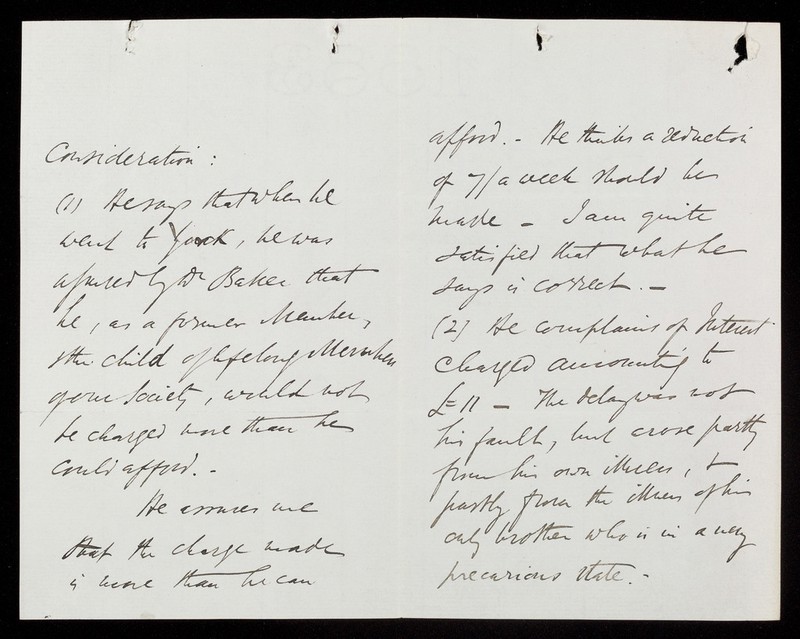 Consideration :
(1) He says that when he
went to York, he was
assured by Dr Baker that
he, as a former Member,
& the child of lifelong Members
of our Society, would not
be charged more than he
could afford. -
He assures me
that the charge made
is more than he can
afford. - He thinks a reduction
of 7/ a week should be
made - I am quite
satisfied that what he
says is correct. -
(2) He complains of Interest
charged amounting to
£=11 - The delay was not
his fault, but arose partly
from his own illness, &
partly from the illness of his
only brother who is in a very
precarious state. -